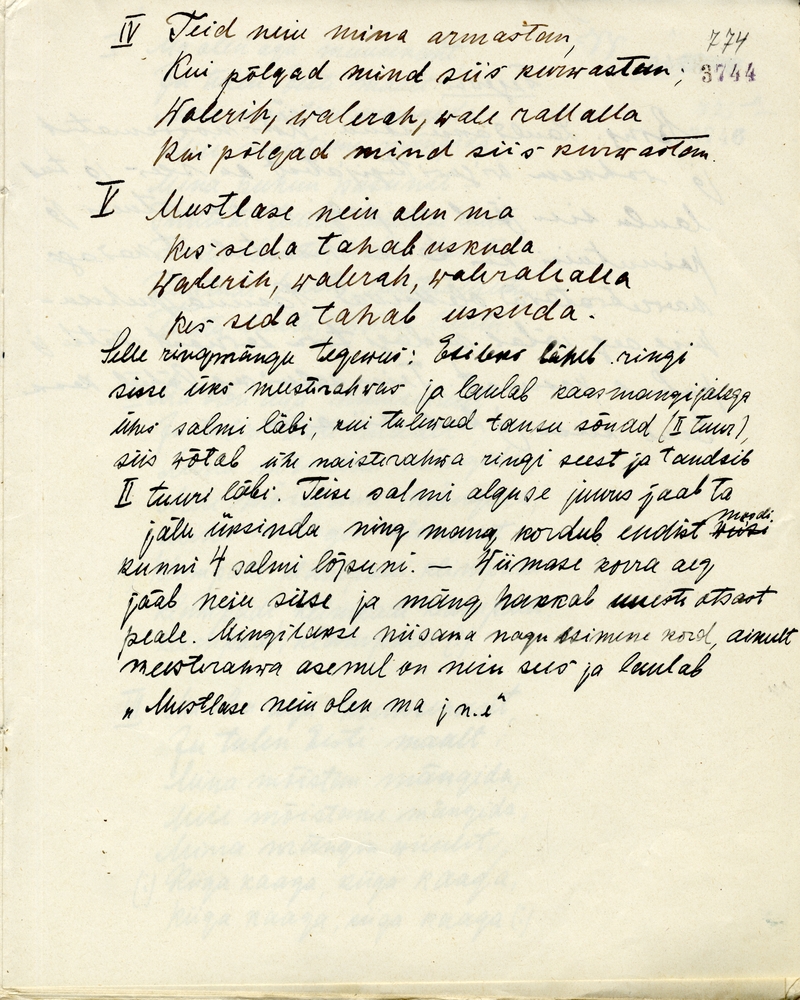 774
3744
IV Teid neiu mina armastan,
Kui põlgad mind siis kurwastan;
Walerih, walerah, wale rallalla
Kui põlgad mind siis kurwastan.
V Mustlase neiu olen ma
kes seda tahab uskuda
Walerih, walerah, walerallalla
kes seda tahab uskuda.
Selle ringmängu tegewus: Esiteks läheb ringi
sisse üks meesterahwas ja laulab kaasmängijatega
ühes salmi läbi, kui tulewad tantsu sõnad (II tuur),
siis wõtab ühe naisterahwa ringi seest ja tandsib
II tuuri läbi. Teise salmi alguse juures jääb ta
jälle üksinda ning mäng kordub endist moodi
kunni 4 salmi lõpuni. — Wiimase korra aeg
jääb neiu sisse ja mäng hakkab uuesti otsast
peale. Mingitakse niisama nagu esimene kord, ainult
meesterahwa asemel on neiu sees ja laulab
„Mustlase neiu olen ma j n.e"